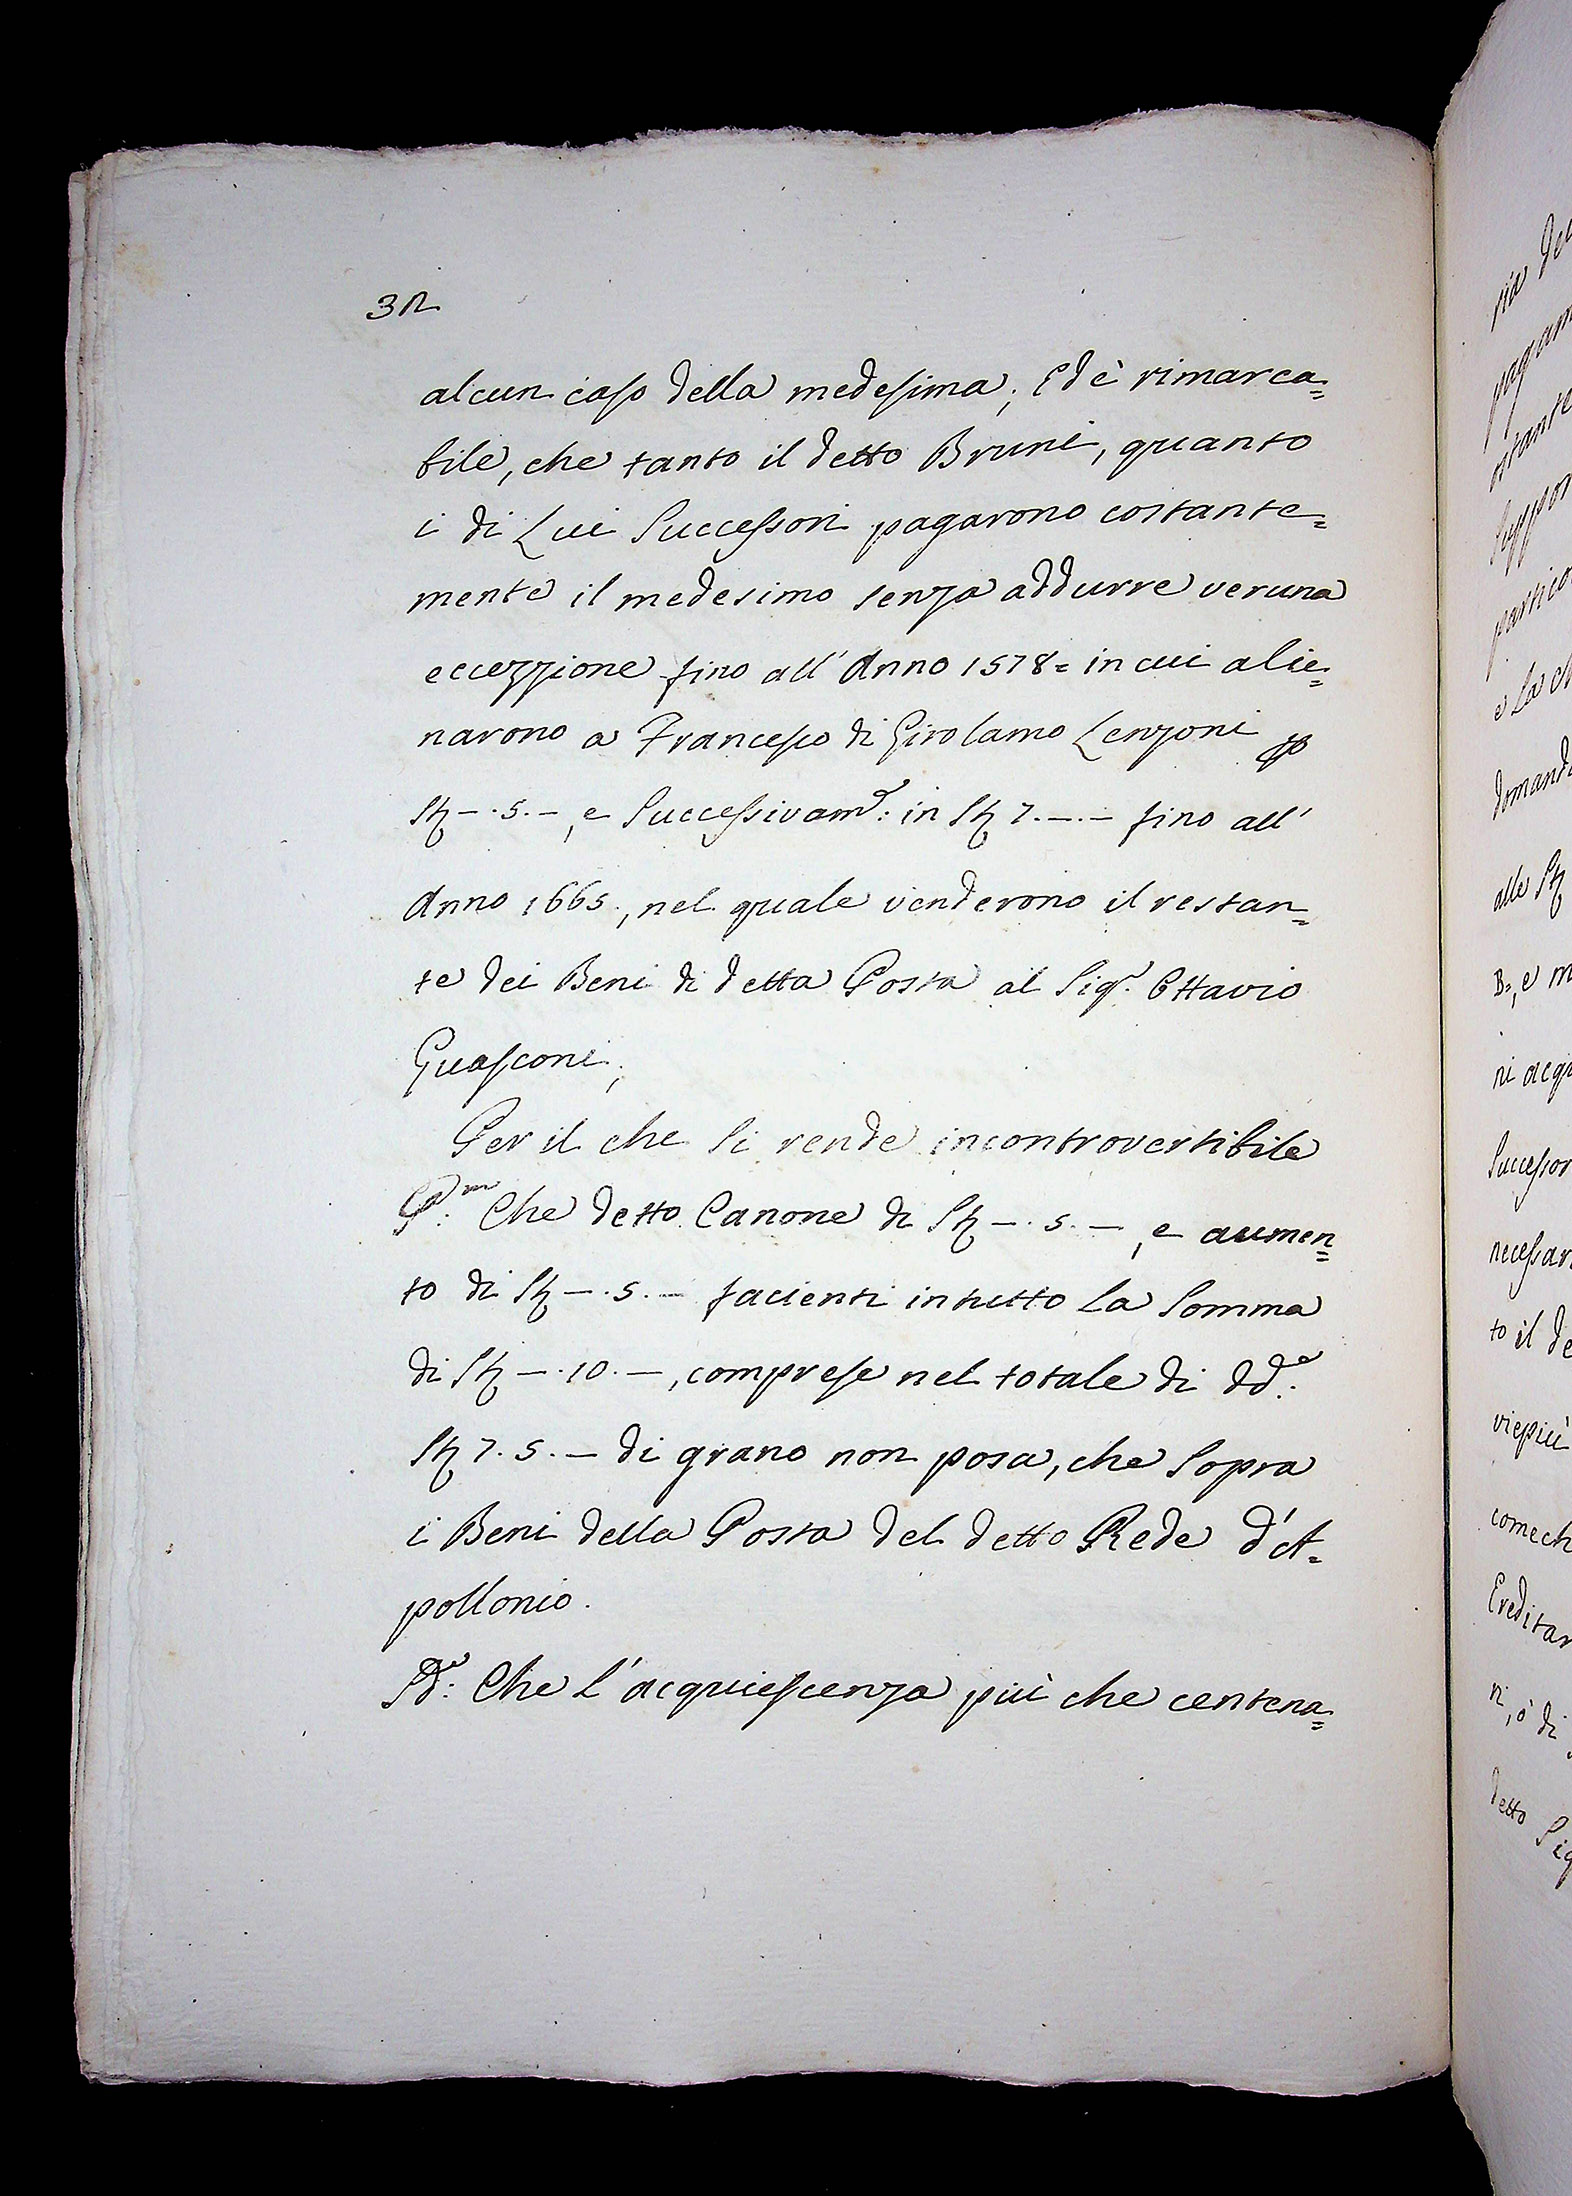 32
alcun caso della medesima; Ed è rimarca=
bile, che tanto il detto Bruni, quanto
i di Lui Successori pagarono costante=
mente il medesimo senza addurre veruna
eccezzione fino all' Anno 1578= in cui alie=
narono a Francesco di Girolamo Lenzoni p
St͞a -.5.-, e Successivam.e: in St͞a 7.-.- fino all'
Anno 1665., nel quale venderono il restan=
te dei Beni di detta Posta al Sig.r Ottavio
Guasconi;
Per il che Si rende incontrovertibile
P.:m Che detto Canone di St͞a -.5.-, e aumen=
to di St͞a -.5.- facienti in tutto La Somma
di St͞a -.10.-, comprese nel totale di dd.e:
St͞a 7.5.- di grano non posa, che Sopra
i Beni della Posta del detto Rede d'A=
pollonio.
Sd.o: Che L'acquiescenza più che centena=
ria del
pagam
ostante
Suppon
partico
e La ch
domand
alle St͞a
B=, e m
ni acqu
Successor
necessar
to il de
viepiù
comech
Ereditar
ni, ò di
detto Sig